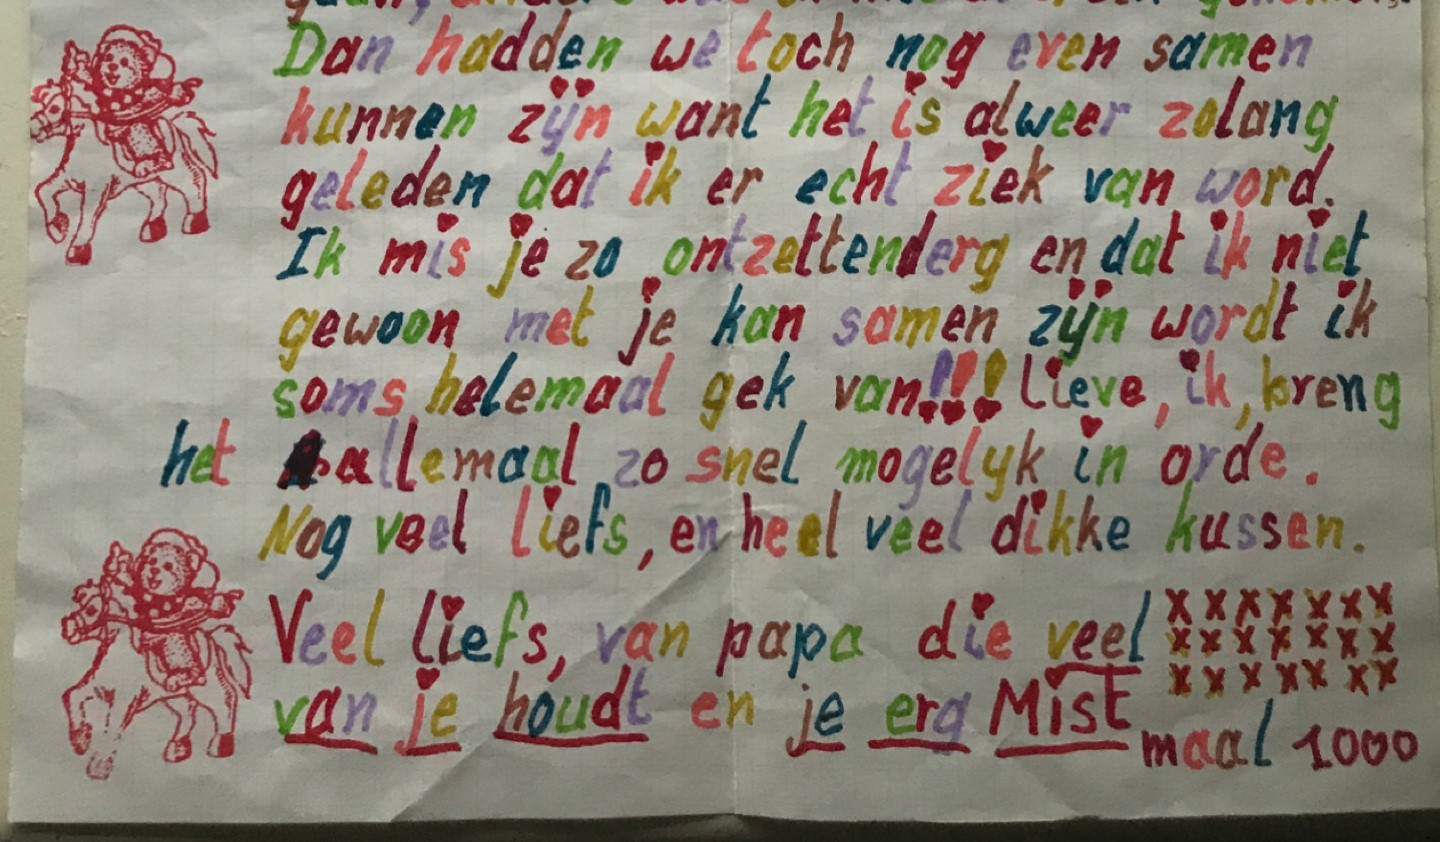 Dan hadden we toch nog even samen
kunnen zijn want het is alweer zolang
geleden dat ik er echt ziek van word.
Ik mis je zo ontzettenderg en dat ik niet
gewoon met je kan samen zijn wordt ik
soms helemaal gek van!!! Lieve, ik, breng
het allemaal zo snel mogelyk in orde.
Nog veel liefs, en heel veel dikke kussen.
Veel liefs, van papa die veel xxxxxxx
xxxxxxx
xxxxxxx
van je houdt en je erg Mist
maal 1000